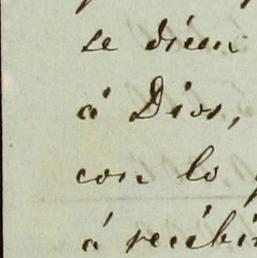 se dicen
á Dios,
con lo
á recibi